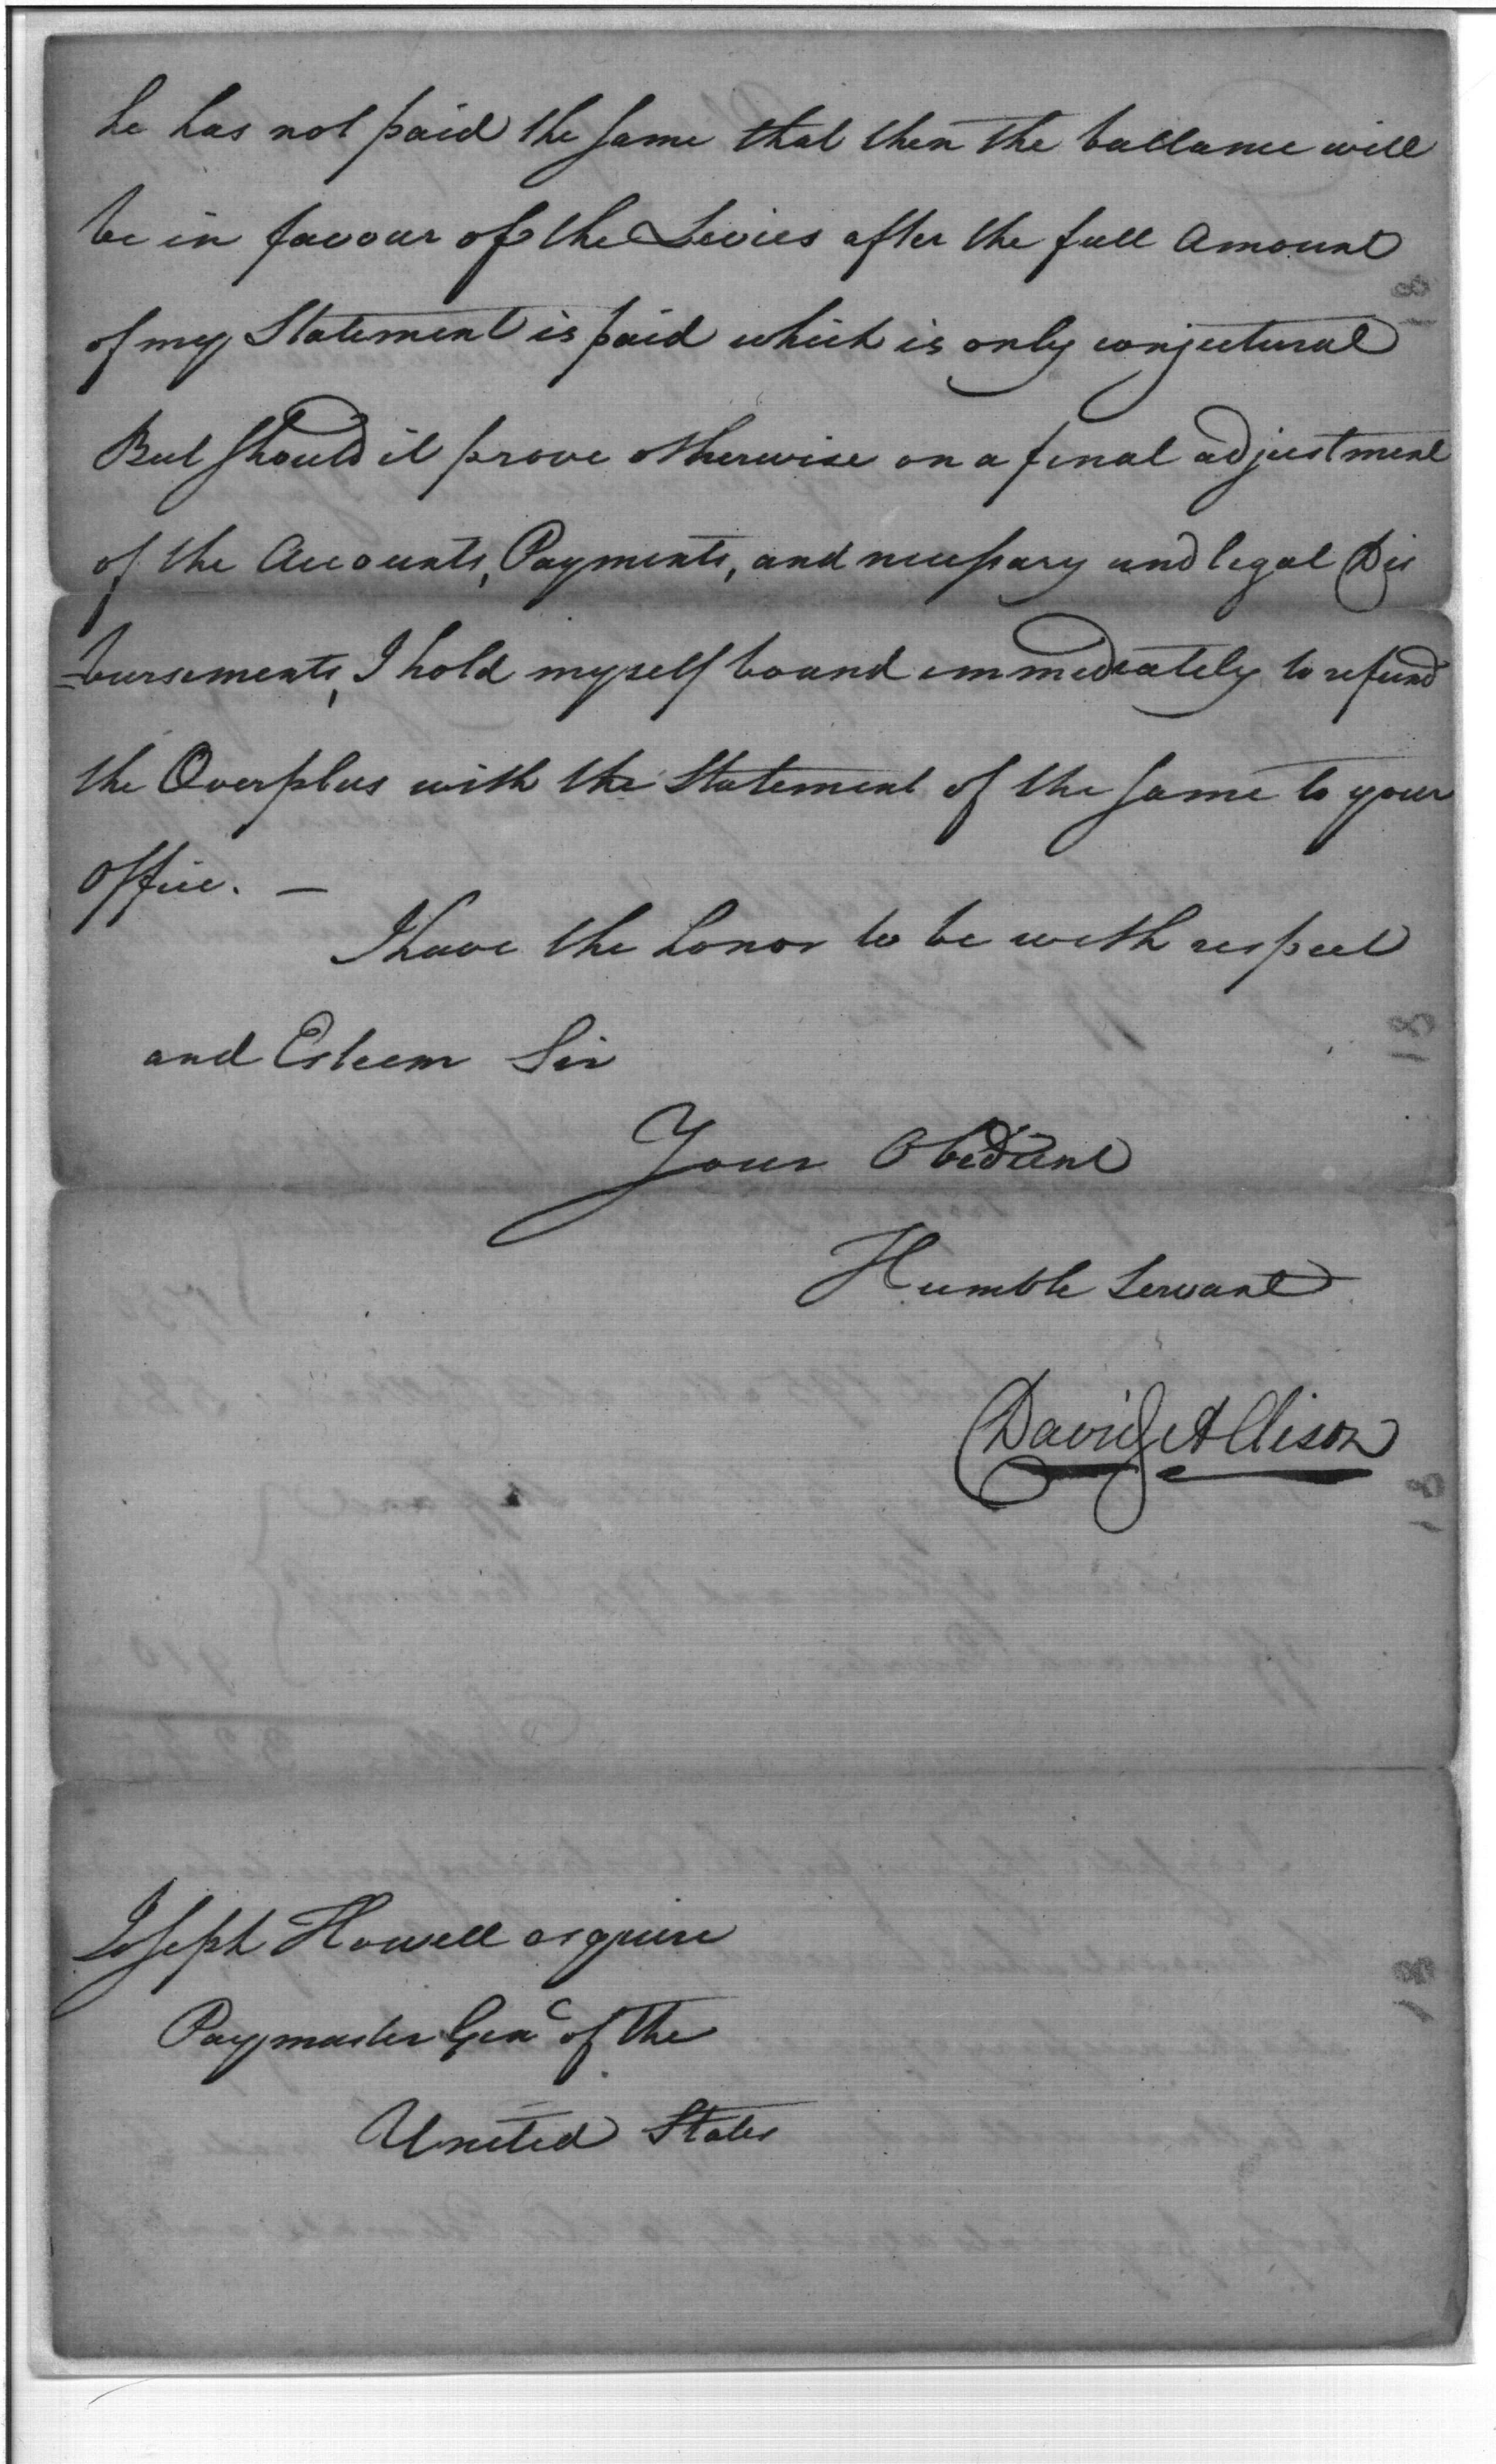 he has not paid the same that then the ballance will
be in favour of the Levies after the full Amount
of my Statement is paid which is only conjectural
But should it prove otherwise on a final adjustment
of the Accounts, Payments, and necessary and legal Dis
=bursements, I hold myself bound immediately to refund
the Overplus with the Statement of the same to your
Office. —
I have the honor to be with respect
and Esteem Sir
Your Obedient
Humble Servant
David Allison
Joseph Howell esquire
Paymaster Genl of the
United States